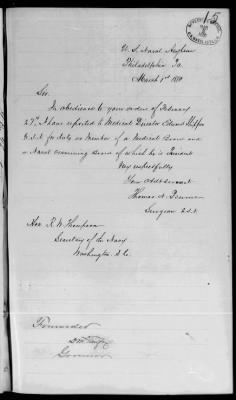 15
U. S. Naval Asylum
Philadelphia Pa.
March 1st 1880
Sir
In obedience to your order of February
27th I have reported to Medical Director Edward Shippen
U.S.N. for duty as member of a Medical Board and
a Naval examining Board of which he is President
Very respectfully
Your Obdt servant
Thomas N. Penrose
Surgeon U.S.N.
Hon R W Thompson
Secretary of the Navy
Washington D.C.
Forwarded
Governor